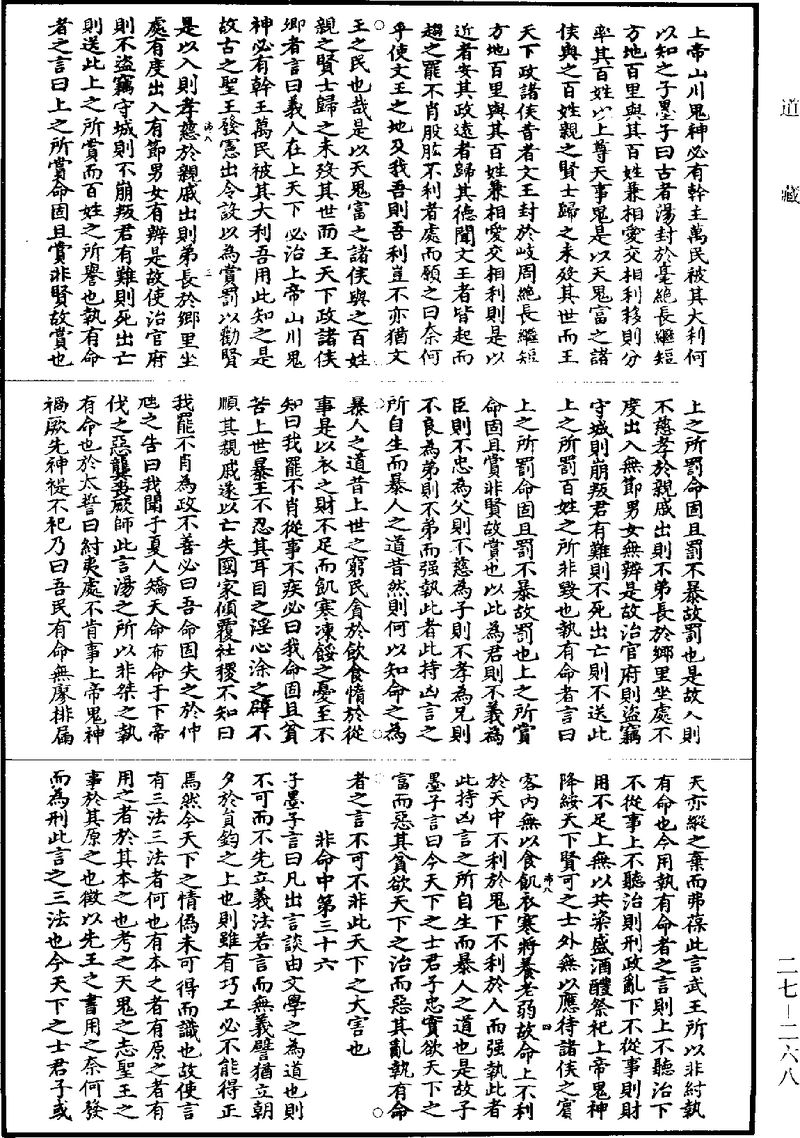 道藏
上帝山川鬼神必有幹主萬民被其大利何
以知之子墨子曰古者湯封於亳絕長繼短
方地百里與其百姓兼相愛交相利移則分
率其百姓以上尊天事鬼是以天鬼富之諸
侯與之百姓親之賢士歸之未歿其世而王
天下政諸侯昔者文王封於岐周絕長繼短
方地百里與其百姓兼相愛交相利則是以
近者安其政遠者歸其德聞文王者皆起而
趨之罷不肖股肱不利者處而願之曰奈何
乎使文王之地及我吾則吾利豈不亦猶文
王之民也哉是以天鬼富之諸侯與之百姓
親之賢士歸之未歿其世而王天下政諸侯
鄉者言曰義人在上天下必治上帝山川鬼
神必有幹主萬民被其大利吾用此知之是
故古之聖王發憲出令設以為賞罰以勸賢
是以入則孝慈於親戚出則弟長於鄉里坐
處有度出入有節男女有辨是故使治官府
則不盜竊守城則不崩叛君有難則死出亡
則送此上之所賞而百姓之所譽也執有命
者之言曰上之所賞命固且賞非賢故賞也
上之所罰命固且罰不暴故罰也是故入則
不慈孝於親戚出則不弟長於鄉里坐處不
度出入無節男女無辨是故治官府則盜竊
守城則崩叛君有難則不死出亡則不送此
上之所罰百姓之所非毀也執有命者言曰
上之所罰命固且罰不暴故罰也上之所賞
命固且賞非賢故賞也以此為君則不義為
臣則不忠為父則不慈為子則不孝為兄則
不良為弟則不弟而强執此者此持凶言之
所自生而暴人之道昔然則何以知命之為
暴人之道昔上世之窮民貪於飲食惰於從
事是以衣之財不足而飢寒凍餒之憂至不
知曰我罷不肖從事不疾必曰我命固且貧
苦上世暴王不忍其耳目之淫心涂之辟不
順其親戚遂以亡失國家傾覆社稷不知曰
我罷不肖為政不善必曰吾命固失之於仲
虺之告曰我聞于夏人矯天命布命于下帝
伐之惡龔喪厥師此言湯之所以非桀之執
有命也於太誓曰紂夷處不肯事上帝鬼神
禍厥先神禔不祀乃曰吾民有命無廖排扁
天亦縱之棄而弗葆此言武王所以非紂執
有命也今用執有命者之言則上不聽治下
不從事上不聽治則刑政亂下不從事則財
用不足上無以共粢盛酒醴祭祀上帝鬼神
降綏天下賢可之士外無以應待諸侯之賓
客內無以食飢衣寒將養老弱故命上不利
於天中不利於鬼下不利於人而强執此者
此持凶言之所自生而暴人之道也是故子
墨子言曰今天下之士君子忠實欲天下之
富而惡其貧欲天下之治而惡其亂執有命
者之言不可不非此天下之大害也
非命中第三十六
子墨子言曰凡出言談由文學之為道也則
不可而不先立義法若言而無義譬猶立朝
夕於員鈞之上也則雖有巧工必不能得正
焉然今天下之情偽未可得而識也故使言
有三法三法者何也有本之者有原之者有
用之者於其本之也考之天鬼之志聖王之
事於其原之也徵以先王之書用之奈何發
而為刑此言之三法也今天下之士君子或
二七—二六八